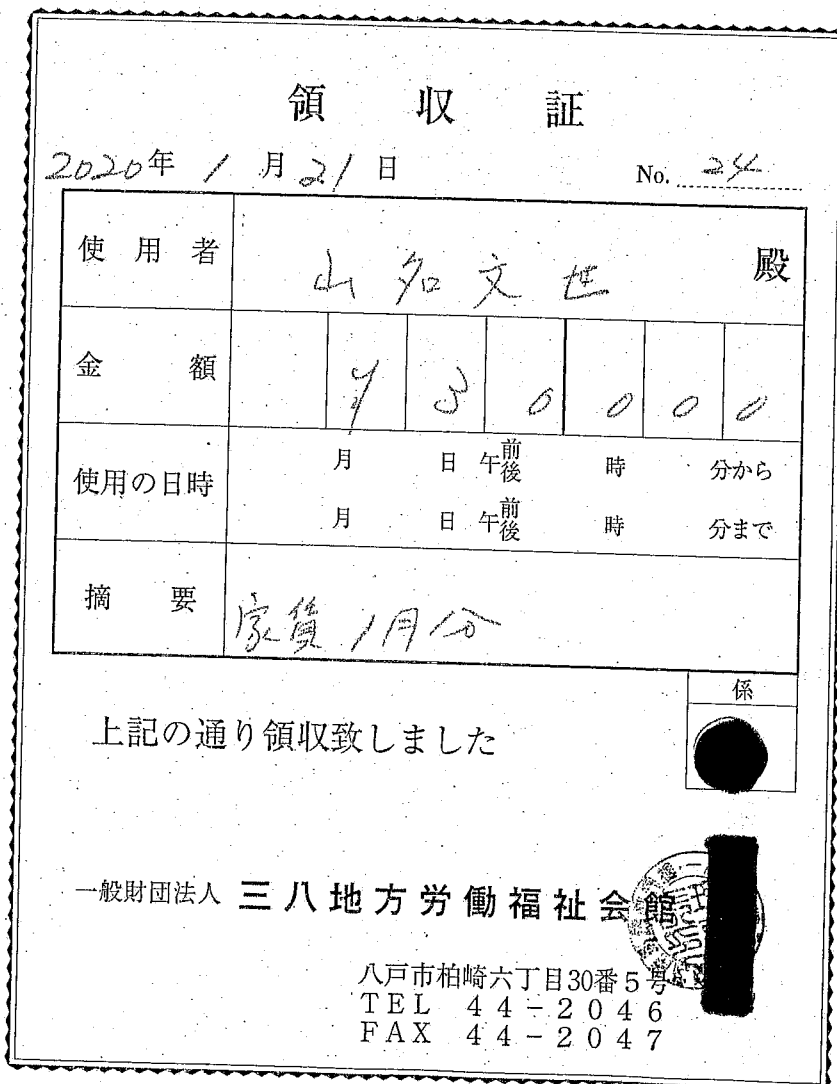 領収証
2020年 1月21日 No. 24
使用者 山名文世 殿
金額 ¥30000
使用の日時 月 日 午前後 時 分から
月 日 午前後 時 分まで
摘要 家賃1月分
係
上記の通り領収致しました
一般財団法人 三八地方労働福祉会館
八戸市柏崎六丁目30番5号
TEL 44-2046
FAX 44-2047